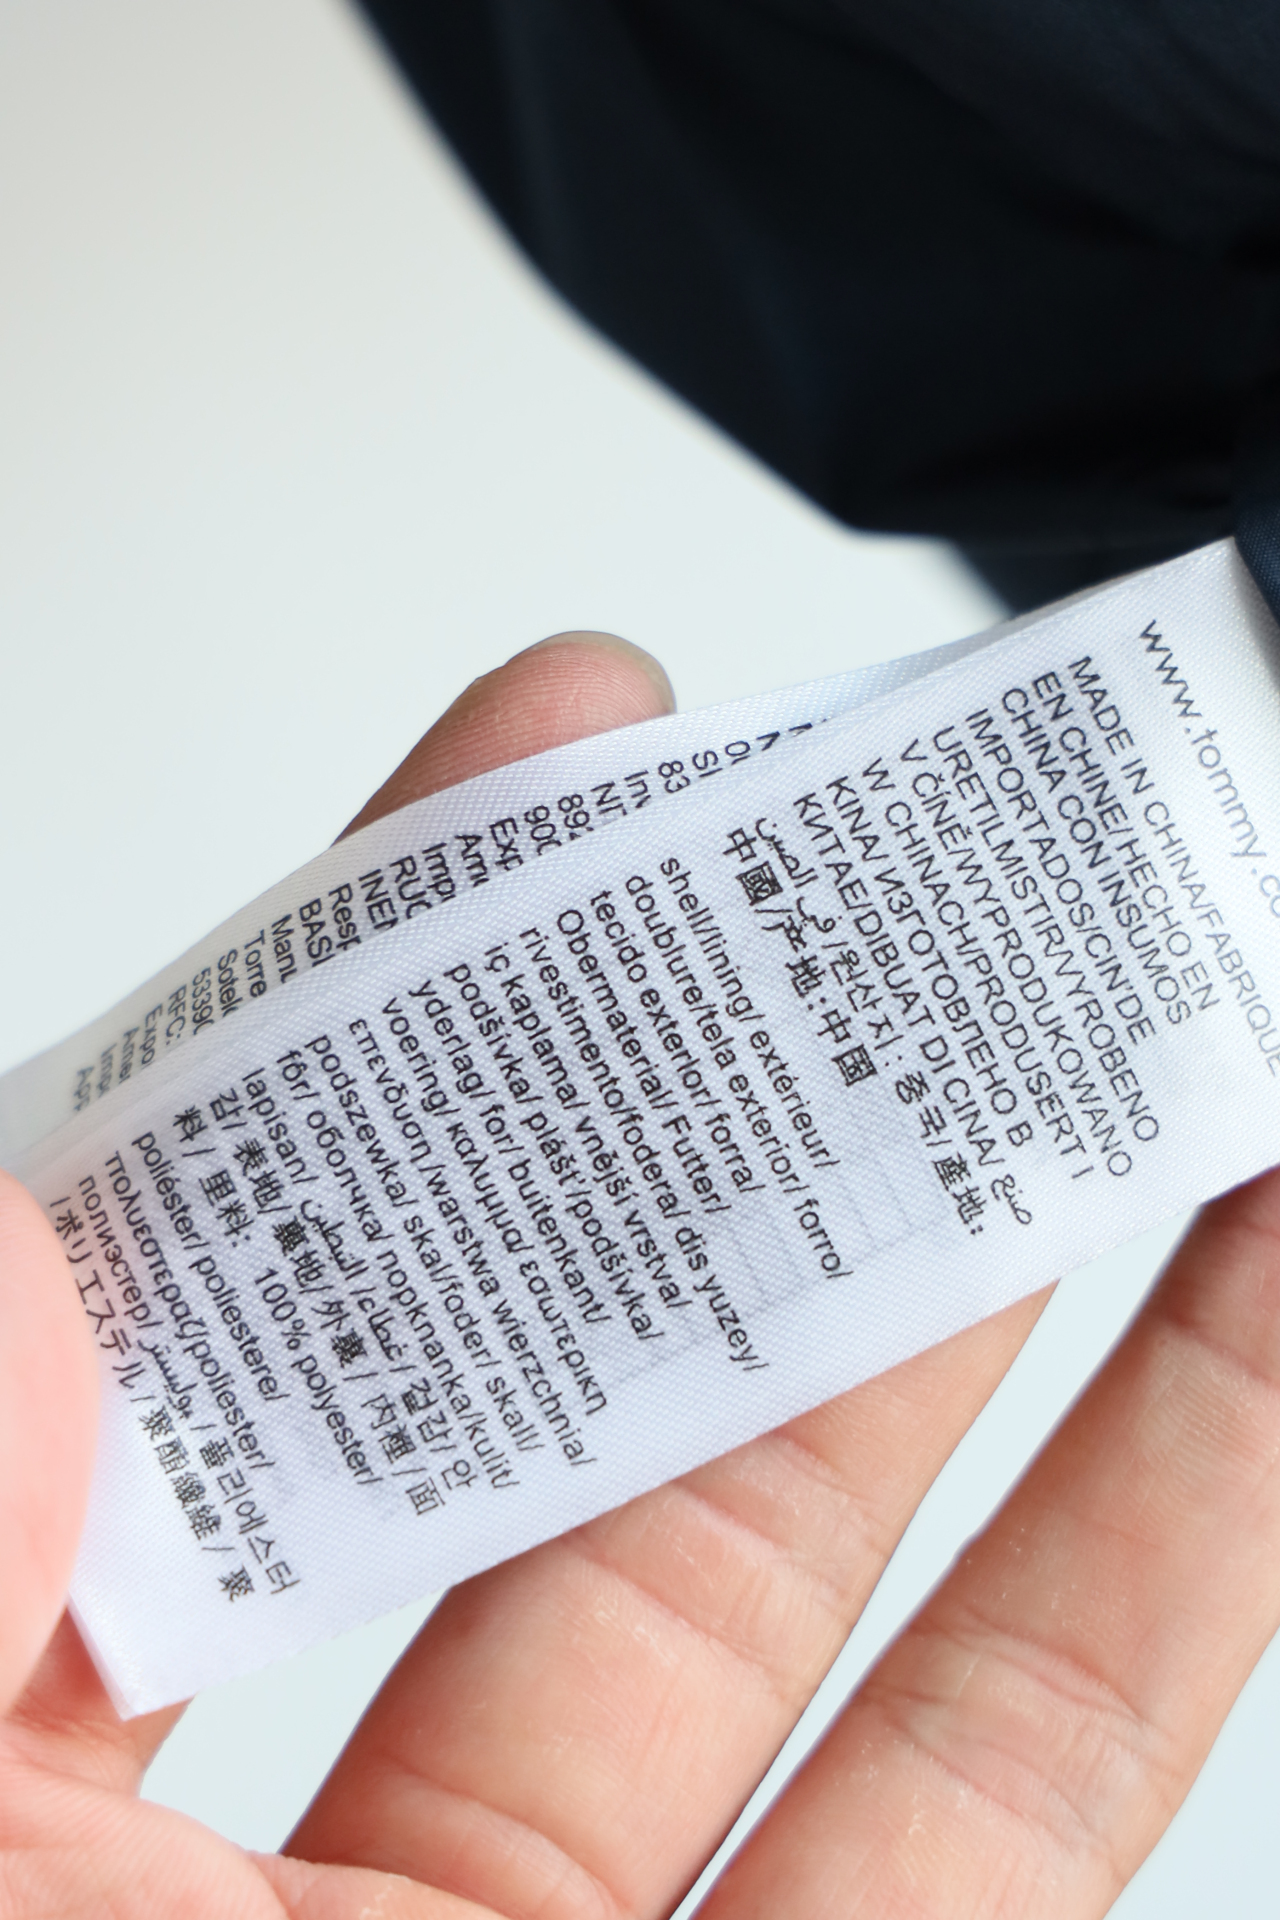 www.tommy.co
MADE IN CHINA/FABRIQUÉ
EN CHINE/HECHO EN
CHINA CON INSUMOS
IMPORTADOS/CIN'DE
URETILMISTIR/VYROBENO
V ČÍNĚ/WYPRODUKOWANO
W CHINACH/PRODUSERT I
KINA/ ИЗГОТОВЛЕНО В
КИТАЕ/DIBUAT DI CINA/ صنع
في الصين /원산지: 중국/ 產地:
中國/产地:中國
shell/lining/ extérieur/
doublure/tela exterior/ forro/
tecido exterior/ forra/
Obermaterial/ Futter/
rivestimento/fodera/ dis yuzey/
iç kaplama/ vnější vrstva/
podšívka/ plášť/podšívka/
yderlag/ for/ buitenkant/
voering/ κάλυμμα/ εσωτερική
επένδυση/warstwa wierzchnia/
podszewka/ skal/foder/ skall/
fôr/ оболочка/ подкладка/kulit/
lapisan/ غطاء/ التبطين / 겉감/ 안
감/ 表地/ 裏地/ 外裏 / 內裡 / 面
料 / 里料: 100% polyester/
poliéster/ poliestere/
πολυεστερας/poliester/
полиэстер/ بوليستر / 폴리에스터
/ ポリエステル / 聚酯纖維 / 聚
83
Imp
Exp
RUC
INEN
Resp
BAS
Manu
Torre
Sotelo
5339
RFC:
Expo